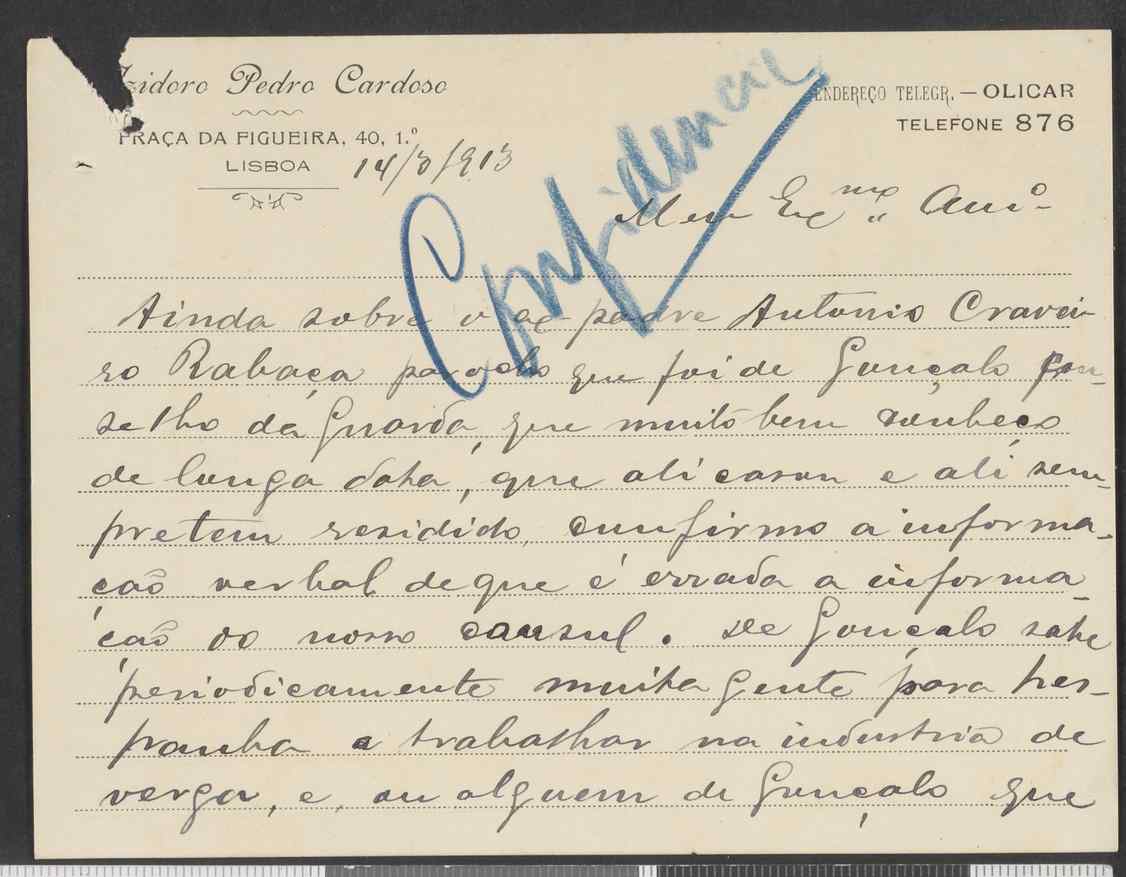 Isidoro Pedro Cardoso
PRAÇA DA FIGUEIRA, 40, 1.º
LISBOA
14/3/913
ENDEREÇO TELEGR. — OLICAR
TELEFONE 876
Confidencial
Meu Exmo Amo
Ainda sobre o ex-padre Antonio Cravei-
ro Rabaça parocho que foi de Gonçalo con-
selho da Guarda, que muito bem conheço
de longa data, que ali casou e ali sem-
pre tem residido, confirmo a informa-
ção verbal de que é errada a informa-
ção do nosso consul. De Gonçalo sahe
periodicamente muita gente para hes-
panha a trabalhar na industria de
verga, e, ou alguem de Gonçalo que